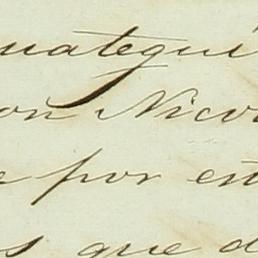 uategui
on Nico
e por est
s que d